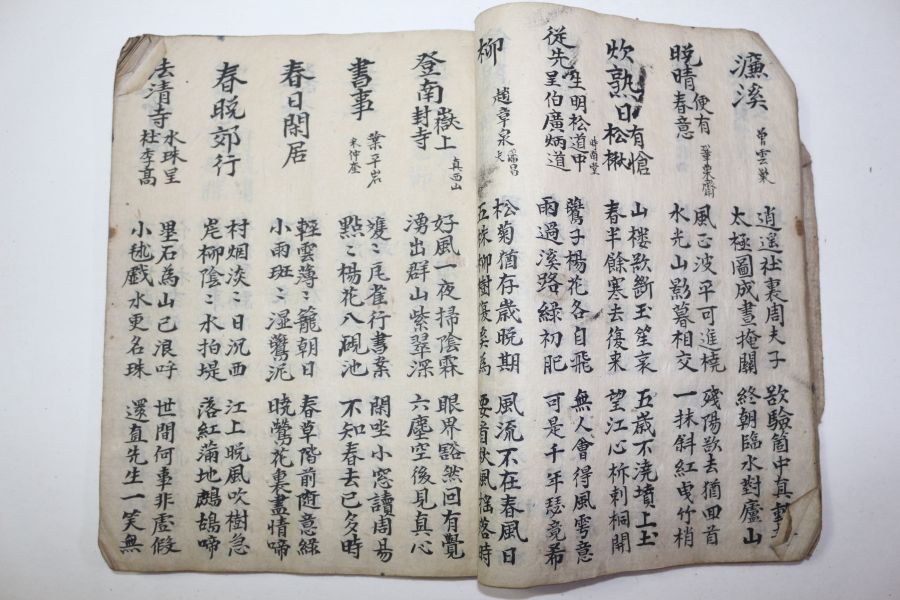 濂溪
曾雲巢
逍遙社裏周夫子
太極圖成晝掩關
欲驗箇中真
終朝臨水對廬山
晩晴便有春意
鞏栗齋
風正波平可進橈
水光山影暮相交
殘陽欲去猶回首
一抹斜紅曳竹梢
炊熟日有愴松楸
時南堂
山樓欲斷玉笙哀
春半餘寒去復来
五歲不澆墳上玉
望江心折刺桐開
從先生明松道中呈伯廣炳道
鶯子楊花各自飛
雨過溪路綠初肥
無人會得風雩意
可是千年瑟竟希
柳
趙章泉
松菊猶存歲晩期
五株柳樹為
風流不在春風日
要看秋風搖落時
登南嶽上封寺
真西山
好風一夜掃陰霖
湧出群山紫翠深
眼界豁然回有覺
六塵空後見真心
書事
葉平岩
宋仲奎
雙〻尾雀行書案
點〻楊花入硯池
閑坐小窓讀周易
不知春去已多時
春日閑居
輕雲薄〻籠朝日
小雨班〻湿鶯泥
春草階前随意綠
曉鶯花裏盡情啼
春晩郊行
村烟淡〻日沉西
岸柳陰〻水拍堤
江上晩風吹樹急
落紅蒲地鷓鴣啼
法清寺水珠里社李高
壘石為山已浪呼
小毬戱水更名珠
世間何事非虛假
還直先生一笑無